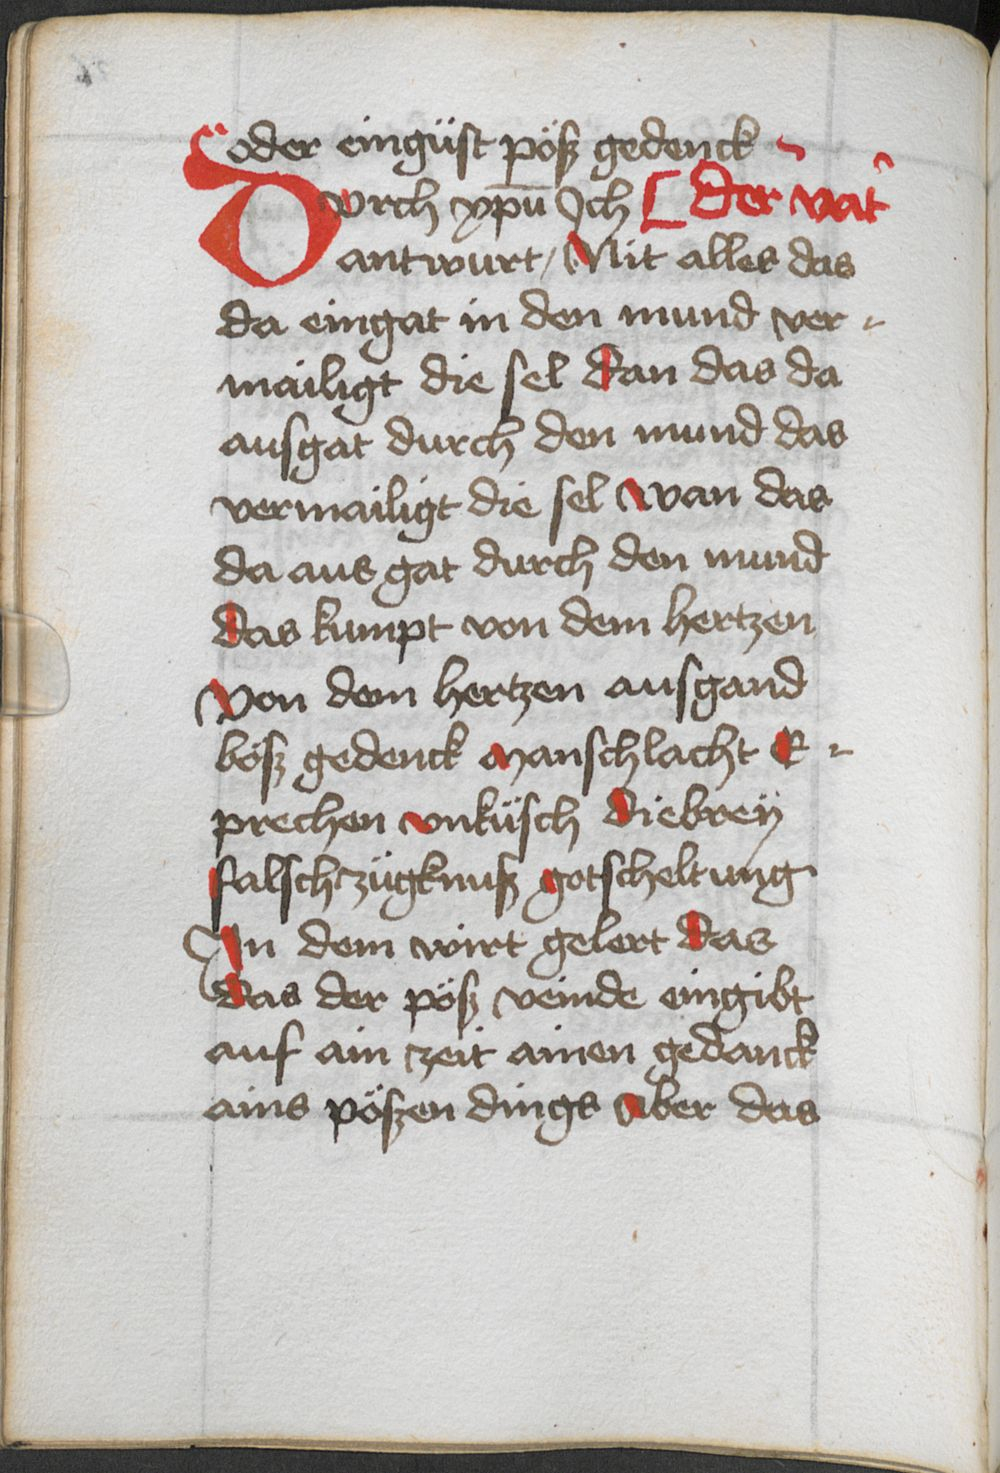 oder eingüst pösz gedenck
Durch xpūm Ich [ Der vat͛
antwurt / Nit alles das
da eingat in den mund ver-
mailigt die sel dan das da
ausgat durch den mund das
vermailigt die sel wan das
da aus gat durch den mund
das kumpt von dem hertzen
Von dem hertzen ausgand
bösz gedenck manschlacht E-
prechen vnküsch diebreÿ
falsch zügknusz gotscheltung
In dem wirt gelert das
das der pösz veinde eingibt
auf ain zeit ainen gedanck
ains pöszen dings aber das